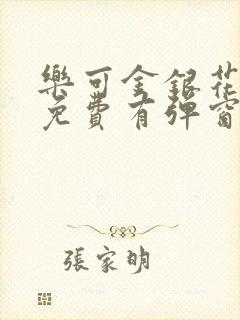 樂可金銀花
免費有彈窗
張家明